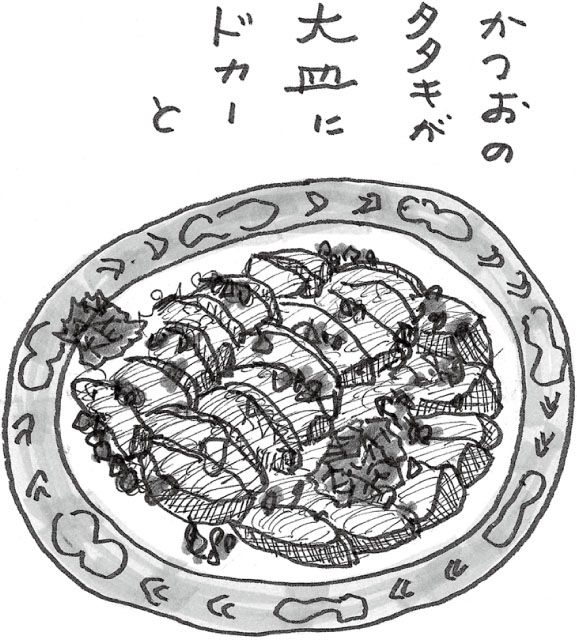 かつおの
タタキが
大皿に
ドカー
と